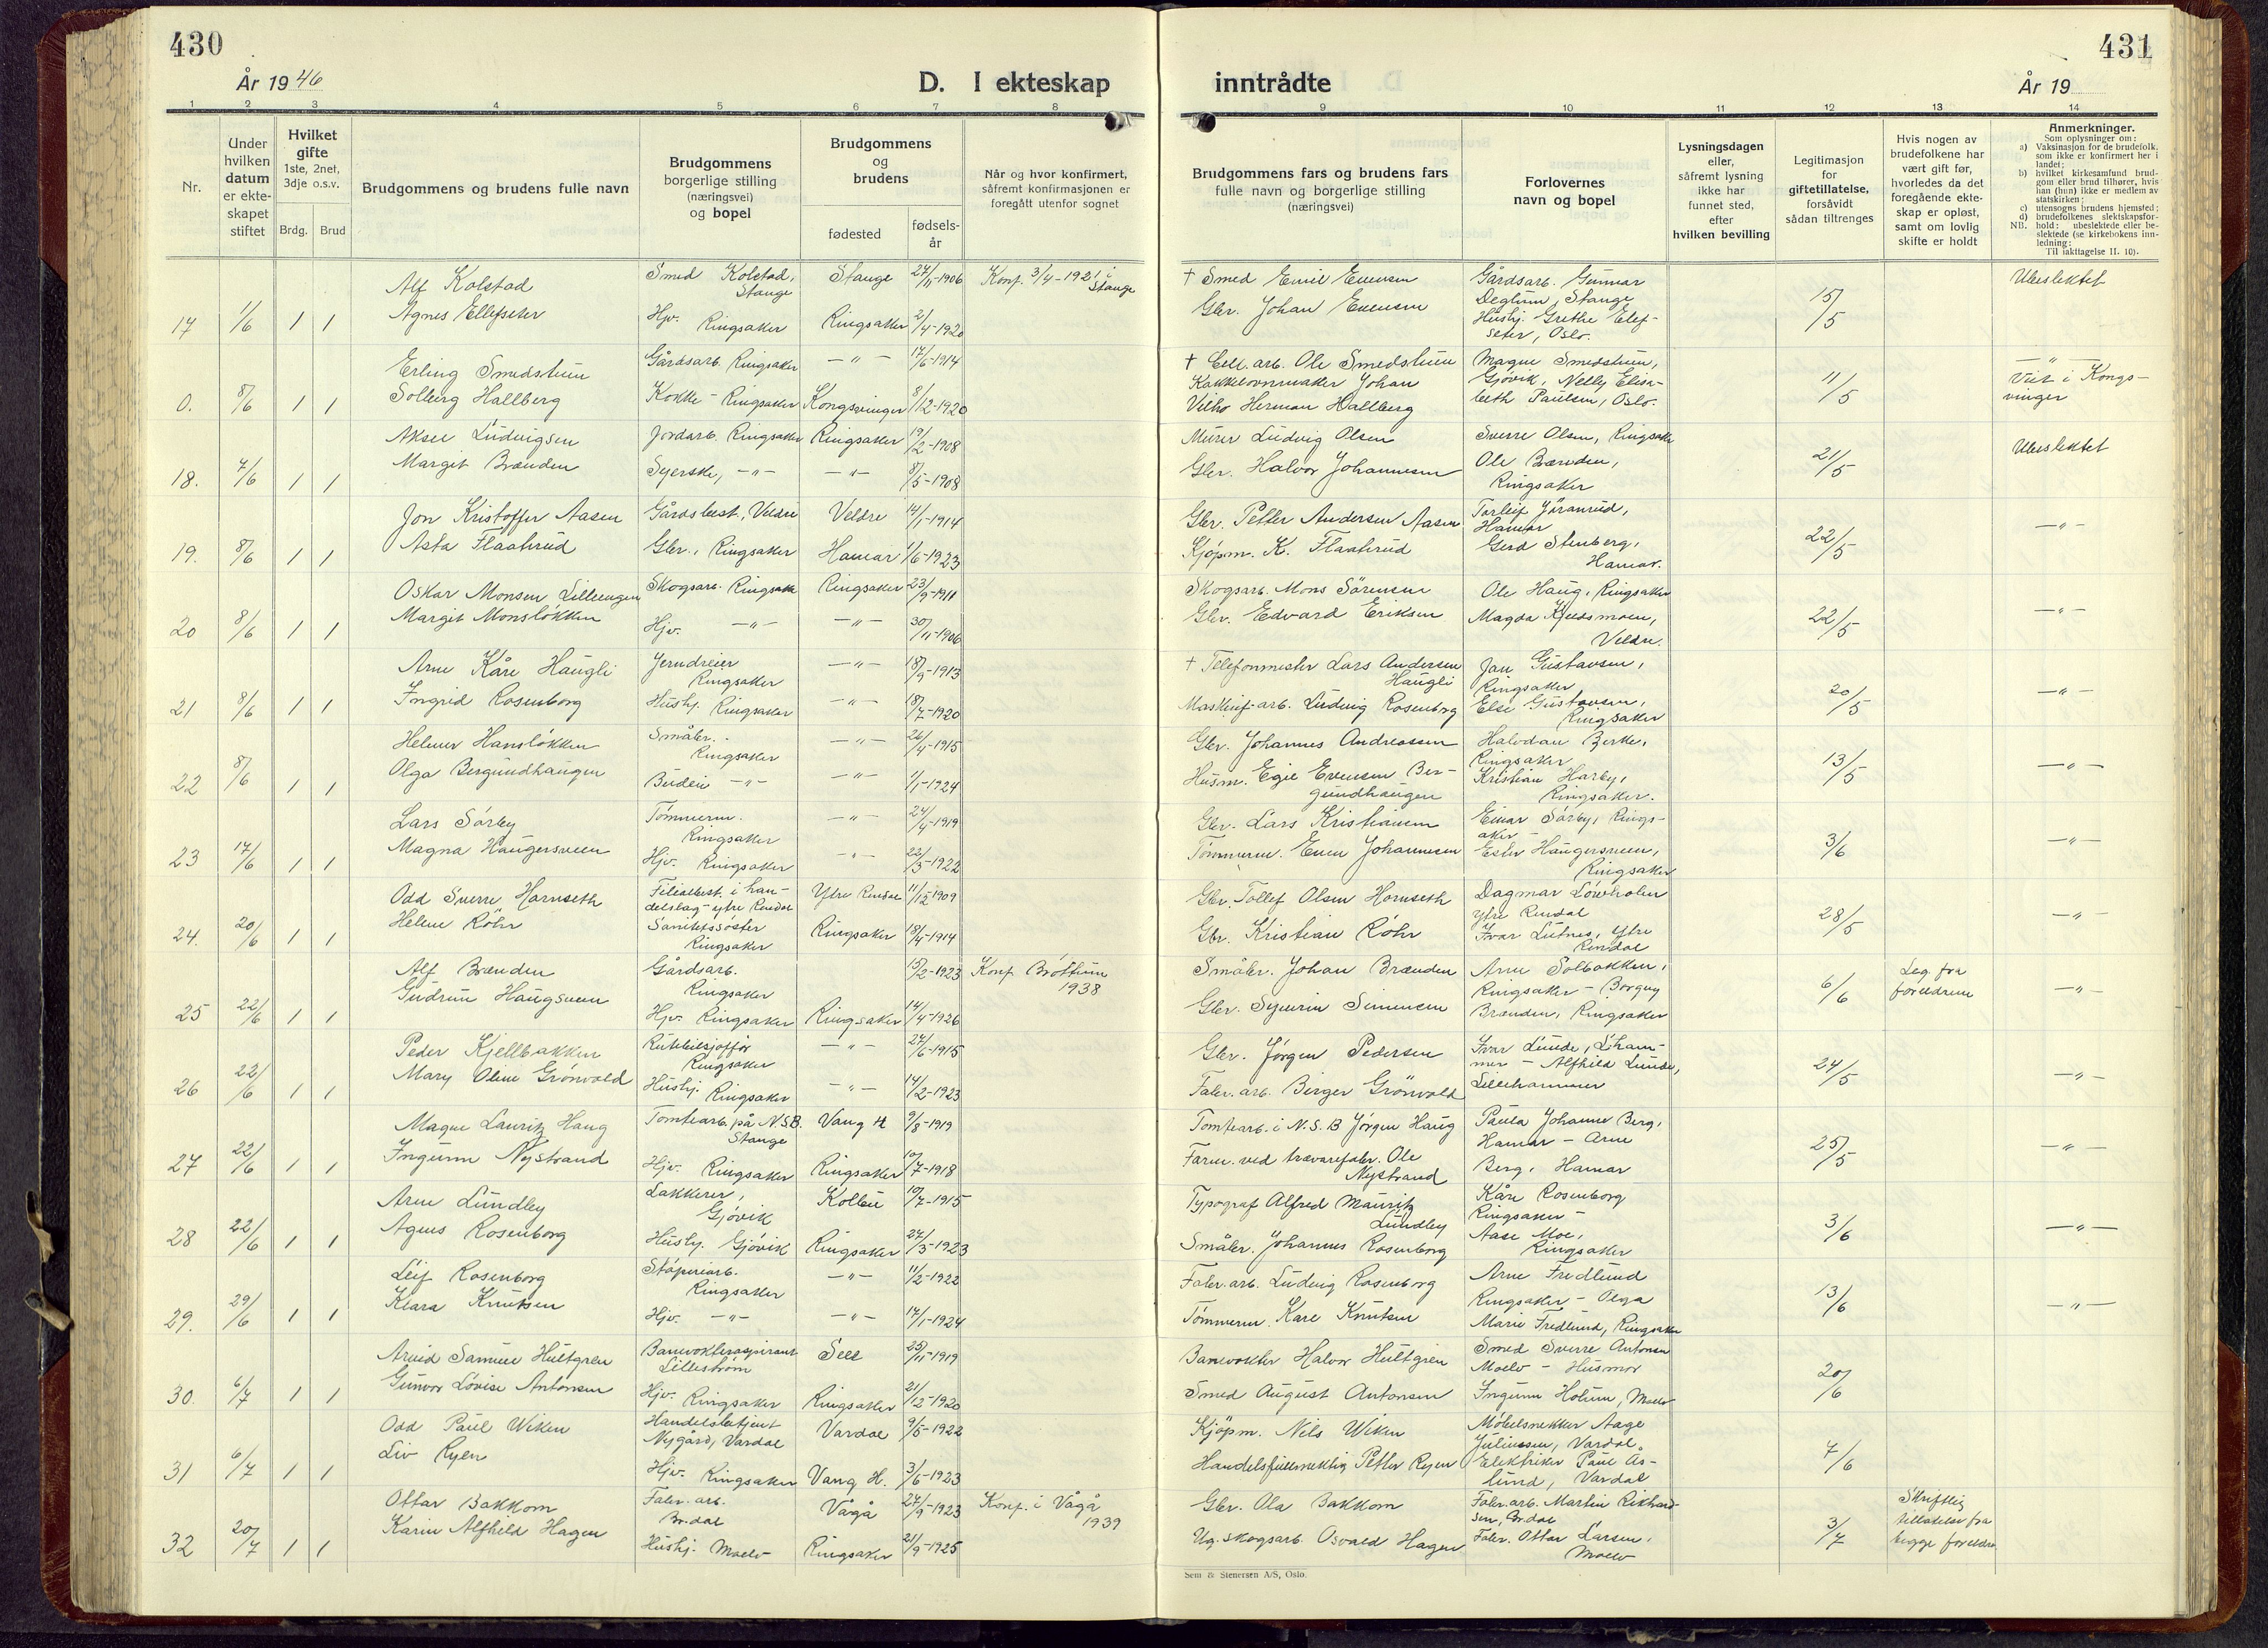 430
År 1946
D. I ekteskap
1 2 3 4 5 6 7 8
Nr.
Under hvilken datum er ekteskapet stiftet
Hvilket gifte 1ste, 2net, 3dje o.s.v.
Brdg. Brud
Brudgommens og brudens fulle navn
Brudgommens borgerlige stilling (næringsvei) og bopel
Brudgommens og brudens
fødested
fødsels-år
Når og hvor konfirmert, såfremt konfirmasjonen er foregått utenfor sognet
17 1/6 1 1 Alf Kolstad Smed Kolstad, Stange Stange 27/11-1906 Konf. 3/4-1921 i Stange
Agnes Ellefseter Hjv. Ringsaker Ringsaker 2/4-1920
0. 8/6 1 1 Erling Smedstuen Gårdsarb. Ringsaker —"— 17/6-1914
Solberg Hallberg Kokke - Ringsaker Kongsvinger 8/12-1920
18. 7/6 1 1 Aksel Ludvigsen Jordarb. Ringsaker Ringsaker 19/2-1908
Margit Brænden Syerske, —"— —"— 8/5-1908
19. 8/6 1 1 Jon Kristoffer Aasen Gårdsbest., Veldre Veldre 14/1-1914
Asta Flaatrud Gbr., Ringsaker Hamar 1/6-1923
20 8/6 1 1 Oskar Monsen Lilleengen Skogsarb. Ringsaker Ringsaker 23/9-1911
Margit Monsløkken Hjv. —"— —"— 30/11-1906
21 8/6 1 1 Arne Kåre Haugli Jerndreier Ringsaker —"— 18/9-1913
Ingrid Rosenborg Hushj. Ringsaker —"— 18/7-1920
22 8/6 1 1 Helmer Hansløkken Småbr. Ringsaker —"— 26/4-1915
Olga Bergundhaugen Budeie —"— —"— 1/1-1924
23 17/6 1 1 Lars Sørby Tømmerm. Ringsaker —"— 24/4-1919
Magna Haugersveen Hjv. Ringsaker —"— 22/3-1922
24. 20/6 1 1 Odd Sverre Hornseth Filialbest. i handelslag - ytre Rendal Ytre Rendal 11/12-1909
Helene Röhr Sanitetssøster Ringsaker Ringsaker 18/4-1914
25 22/6 1 1 Alf Brænden Gårdsarb. Ringsaker 15/2-1923 Konf. Brøttum 1938
Gudrun Haugsveen Hjv. Ringsaker Ringsaker 14/4-1926
26 22/6 1 1 Peder Kjellbakken Rutebilsjåfør Ringsaker —"— 27/6-1915
Mary Oline Grønvold Hushj. Ringsaker —"— 14/2-1923
27 22/6 1 1 Magne Lauritz Haug Tomtearb. på N.S.B. Stange Vang H 9/8-1919
Ingunn Nystrand Hjv. Ringsaker Ringsaker 10/7-1918
28 22/6 1 1 Arne Lundley Lakkerer, Gjøvik Kolbu 10/7-1915
Agnes Rosenborg Hushj. Gjøvik Ringsaker 27/3-1923
29. 29/6 1 1 Leif Rosenborg Støperiarb. Ringsaker —"— 11/2-1922
Klara Knutsen Hjv. —"— —"— 17/1-1924
30. 6/7 1 1 Arvid Samuel Hultgren Banevokteraspirant Lillestrøm Sell 25/11-1919
Gunvor Lovise Antonsen Hjv. Ringsaker Ringsaker 21/12-1920
31 6/7 1 1 Odd Paul Wiken Handelsbetjent Nygård, Vardal Vardal 9/5-1922
Liv Ryen Hjv. Ringsaker Vang H. 3/6-1923
32 20/7 1 1 Ottar Bakkom Fabr. arb. Br.dal Vågå 27/9-1923 Konf. i Vågå 1939
Karin Alfhild Hagen Hushj. Moelv Ringsaker 21/9-1925
431
inntrådte
År 19
9 10 11 12 13 14
Brudgommens fars og brudens fars fulle navn og borgerlige stilling (næringsvei)
Forlovernes navn og bopel
Lysningsdagen eller, såfremt lysning ikke har funnet sted, efter hvilken bevilling
Legitimasjon for giftetillatelse, forsåvidt sådan tiltrenges
Hvis nogen av brudefolkene har vært gift før, hvorledes da det foregående ekteskap er opløst, samt om lovlig skifte er holdt
Anmerkninger.
Som oplysninger om:
a) Vaksinasjon for de brudefolk, som ikke er konfirmert her i landet;
b) hvilket kirkesamfund brudgom eller brud tilhører, hvis han (hun) ikke er medlem av statskirken;
c) utensogns brudens hjemsted;
d) brudefolkenes slektskapsforhold: ubeslektede eller beslektede (se kirkebokens innledning;
NB.
Til iakttagelse II. 10).
† Smed Emil Evensen Gårdsarb. Gunnar Deglum, Stange 15/5 Ubeslektet
Gbr. Johan Evensen Hushj. Grethe Elefseter, Oslo.
† Cell. arb. Ole Smedstuen Magne Smedstuen, Gjøvik, Nelly Elisabeth Paulsen, Oslo. 11/5 —"—
Kakkelovnmaker Johan Vilho Herman Hallberg Viet i Kongsvinger
Murer Ludvig Olsen Sverre Olsen, Ringsaker 21/5 Ubeslektet
Gbr. Halvor Johannesen Ole Brænden, Ringsaker
Gbr. Petter Andersen Aasen Torleif Jøranrud, Hamar 22/5 —"—
Kjøpm. K. Flaatrud Gerd Stenberg, Hamar.
Skogsarb. Mons Sørensen Ole Haug, Ringsaker 22/5 —"—
Gbr. Edvard Eriksen Magda Kjeldsmoen, Veldre.
† Telefonmester Lars Andersen Haugli Jan Gustavsen, Ringsaker 20/5 —"—
Maskinf-arb. Ludvig Rosenborg Else Gustavsen, Ringsaker
Gbr. Johannes Andreassen Halvdan Berke, Ringsaker 13/5 —"—
Husm. Egil Evensen Bergundhaugen Kristian Harby, Ringsaker.
Gbr. Lars Kristiansen Einar Sørby, Ringsaker 3/6 —"—
Tømmerm. Even Johannesen Ester Haugersveen, Ringsaker
Gbr. Tollef Olsen Hornseth Dagmar Løvholen Ytre Rendal 28/5 —"—
Gbr. Kristian Röhr Ivar Lutnes, Ytre Rendal
Småbr. Johan Brænden Arne Solbakken, Ringsaker - Borgny Brænden, Ringsaker 6/6 Leg. fra foreldrene —"—
Gbr. Syverin Simensen
Gbr. Jørgen Pedersen Ivar Lunde, L.hammer - Alfhild Lunde, Lillehammer 24/5 —"—
Fabr. arb. Birger Grönvold
Tomtearb. i N.S.B Jørgen Haug Paula Johanne Berg, Hamar - Arne Berg, Hamar 25/5 —"—
Form. ved trævarefabr. Ole Nystrand
Typograf Alfred Mauritz Lundley Kåre Rosenborg Ringsaker - 3/6 —"—
Småbr. Johannes Rosenborg Aase Moe, Ringsaker
Fabr. arb. Ludvig Rosenborg Arne Fredlund Ringsaker - Olga Marie Fredlund, Ringsaker 13/6 —"—
Tømmerm. Kare Knutsen
Banevokter Halvor Hultgren Smed Sverre Antonsen Moelv - Husmor 20/6
Smed August Antonsen Ingunn Holum, Moelv
Kjøpm. Nils Wiken Møbelsnekker Aage Juliussen, Vardal. 7/6
Handelsfullmektig Petter Ryen Elektriker Paul Aslund, Vardal
Gbr. Ola Bakkom Fabr. arb. Martin Rikhardsen, Br.dal 3/7 Skriftlig tillatelse fra begge foreldre
Ug. skogsarb. Osvald Hagen Fabr. Ottar Larsen, Moelv
Sem & Stenersen A/S, Oslo.